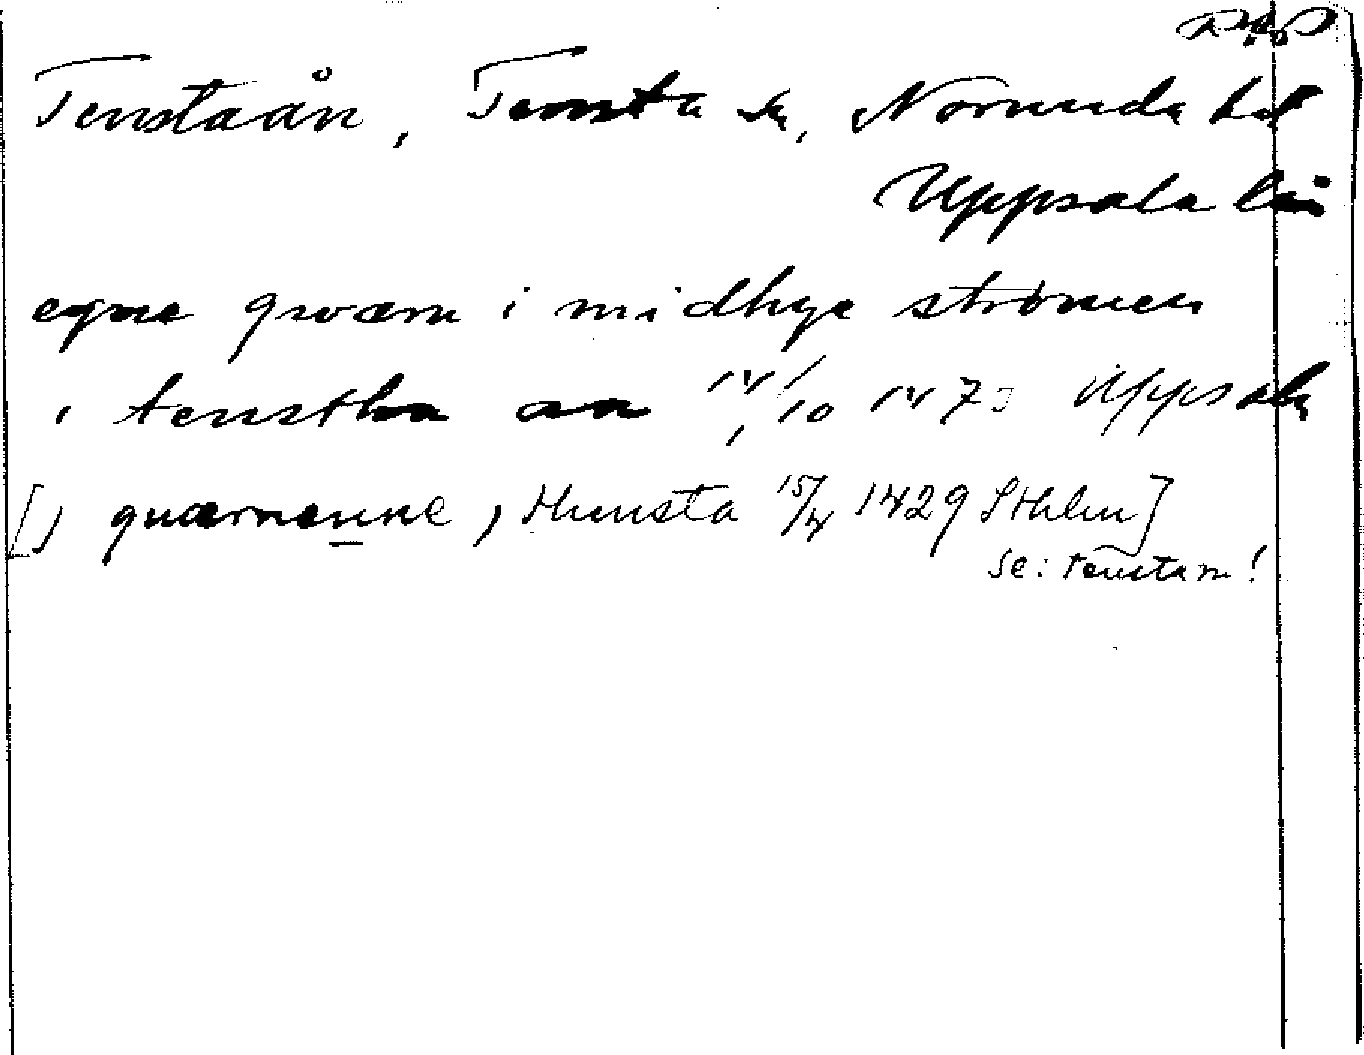 Tenståån, Tensta sn, Norunda hd
Uppsala län
eque qwærn i midhye strömen
i tenstha aa 14/10 1473 Uppsala
[j quærnenne, Hunsta 15/4 1429 Sthlm]
se: Tenstam!